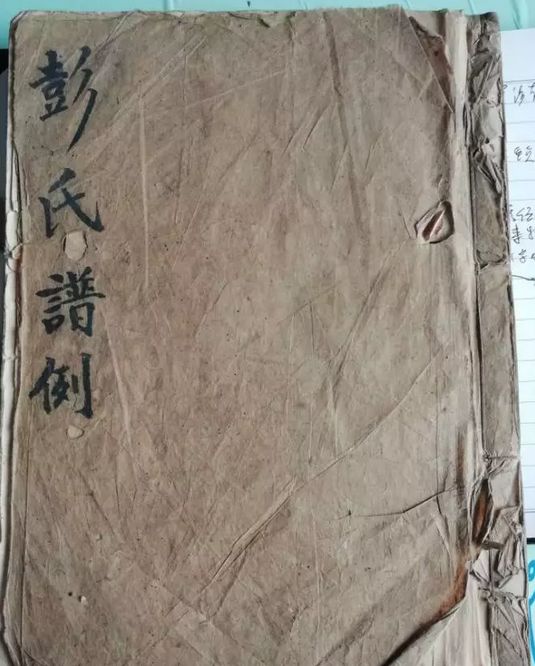 彭氏譜例